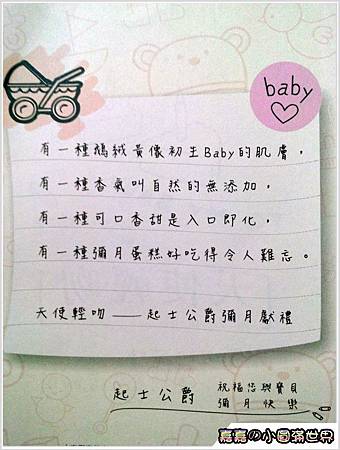 baby
有一種鵝絨黃像初生Baby的肌膚，
有一種香氣叫自然的無添加，
有一種可口香甜是入口即化，
有一種彌月蛋糕好吃得令人難忘。
天使輕吻——起士公爵彌月獻禮
起士公爵
祝福您與寶貝
彌月快樂
嘉嘉の小圓滿世界